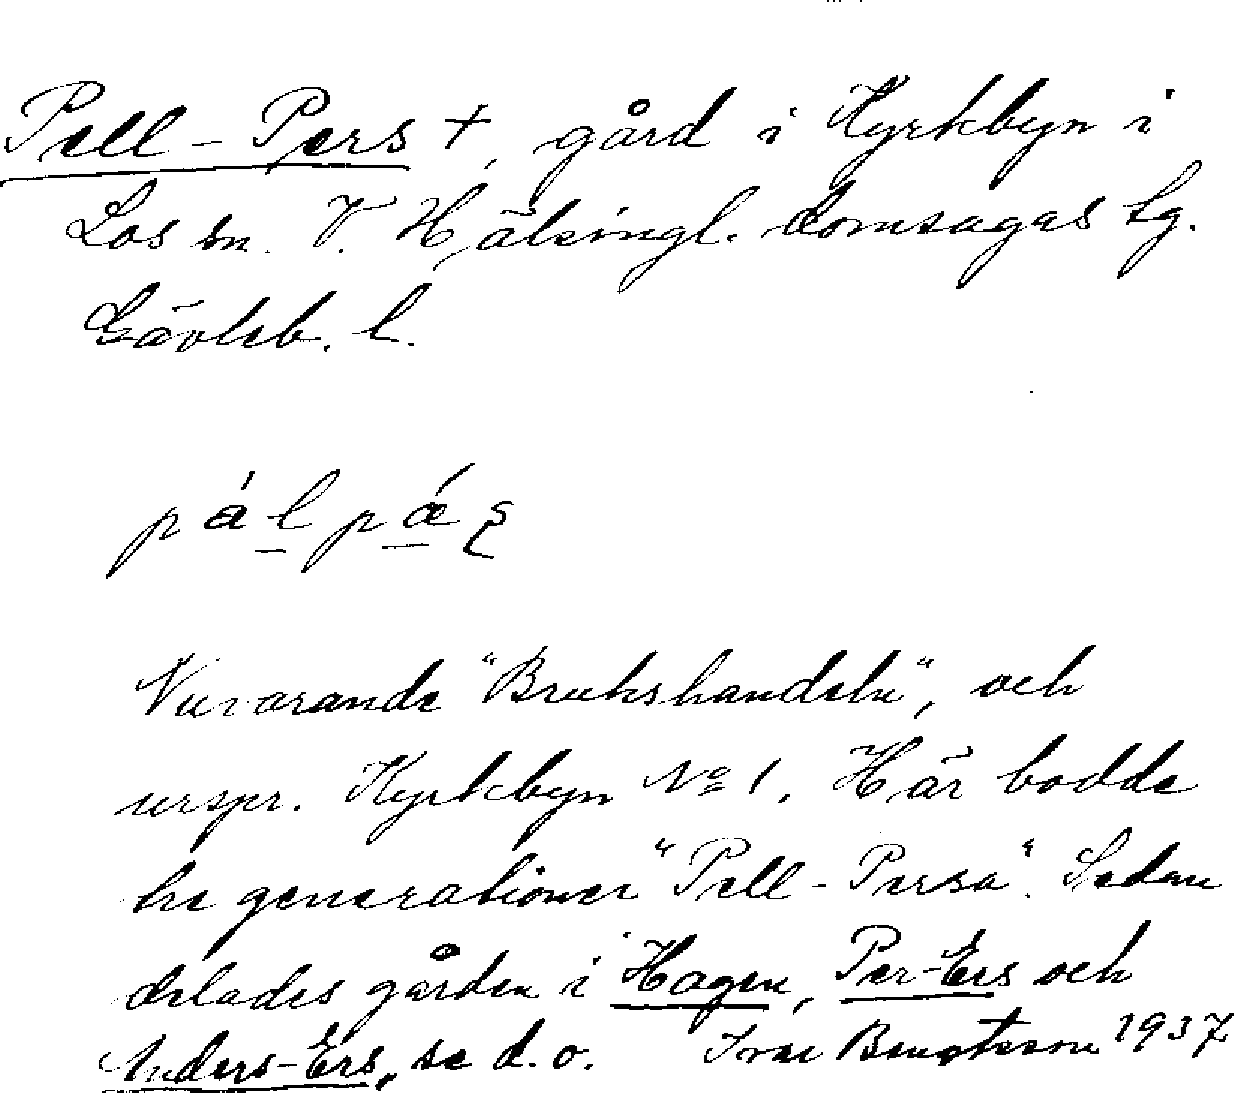 Pell-Pers +, gård i Kyrkbyn i
Los sn. V. Hälsingl. domsagas tg.
Gävleb. l.
pȧ́lpǽʂ
Nuvarande "Brukshandeln", och
urspr. Kyrkbyn No 1. Här bodde
tre generationer "Pell-Persa". Sedan
delades gården i Hagen, Per-Ers och
Anders-Ers, se d. o. Ivar Bengtsson 1937